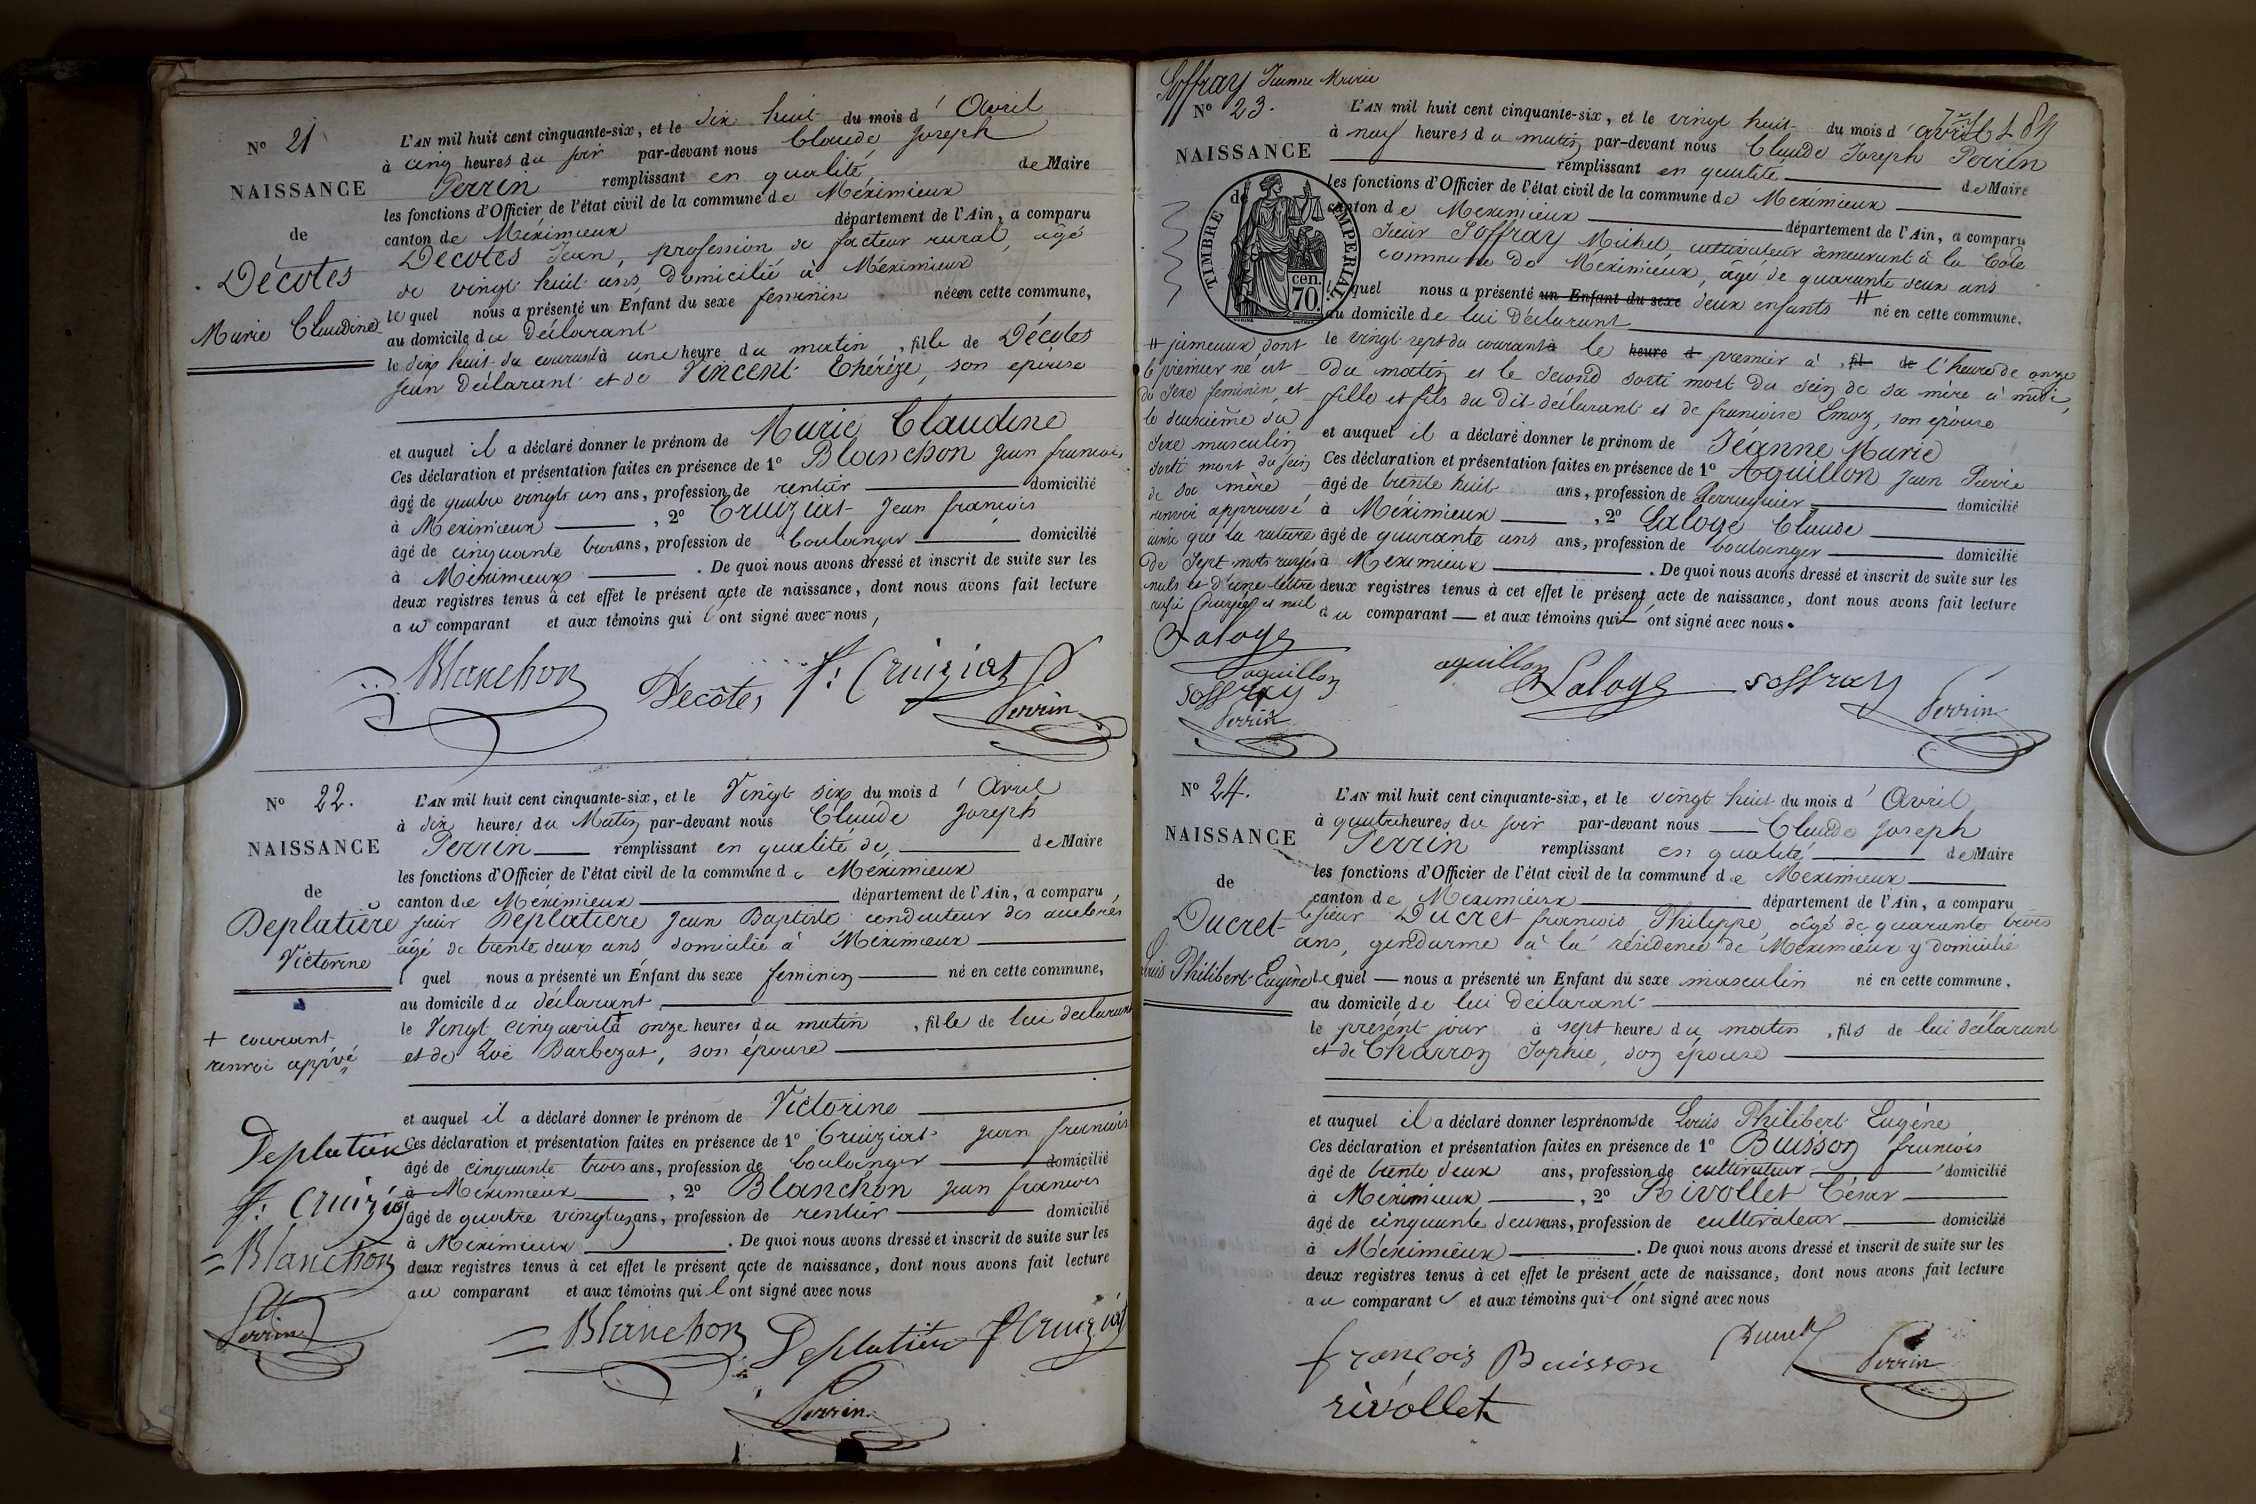 N° 21
L'AN mil huit cent cinquante-six, et le dix huit du mois d' Avril
à cinq heures du soir par-devant nous Claude Joseph
NAISSANCE
Perrin remplissant en qualité de Maire
les fonctions d'Officier de l'état civil de la commune de Méximieux
de
canton de Méximieux département de l'Ain, a comparu
Décotes
Decotes Jean, profession de facteur rural, âgé
de vingt huit ans, domicilié à Méximieux
Marie Claudine
lequel nous a présenté un Enfant du sexe feminin née en cette commune,
au domicile du déclarant
le dix huit du courant à une heure du matin, fille de Décotes
Jean déclarant et de Vincent Thérèze, son epouse
et auquel il a déclaré donner le prénom de Marie Claudine
Ces déclaration et présentation faites en présence de 1° Blanchon Jean francois
âgé de quatre vingts un ans, profession de rentier domicilié
à Meximieux, 2° Cruiziat Jean françois
âgé de cinquante trois ans, profession de boulanger domicilié
à Méximieux. De quoi nous avons dressé et inscrit de suite sur les
deux registres tenus à cet effet le présent acte de naissance, dont nous avons fait lecture
au comparant et aux témoins qui l'ont signé avec nous,
Blanchon Decôtes f: Cruiziat
Perrin
N° 22.
L'AN mil huit cent cinquante-six, et le Vingt six du mois d' Avril
à dix heures du Matin par-devant nous Claude Joseph
NAISSANCE
Perrin remplissant en qualité de de Maire
les fonctions d'Officier de l'état civil de la commune de Méximieux
de
canton de Méximieux département de l'Ain, a comparu
Deplatière
sieur Deplatière Jean Baptiste conducteur des
âgé de trente deux ans domicilié à Méximieux
Victorine
lequel nous a présenté un Enfant du sexe feminin né en cette commune,
au domicile du déclarant
le Vingt cinq avril + à onze heures du matin, fille de lui déclarant
+ courant
renvoi appvé
et de Zoé Barbezat, son épouse
et auquel il a déclaré donner le prénom de Victorine
Ces déclaration et présentation faites en présence de 1° Cruiziat Jean francois
Deplatière
âgé de cinquante trois ans, profession de boulanger domicilié
à Méximieux, 2° Blanchon Jean francois
f: Cruiziat
âgé de quatre vingt un ans, profession de rentier domicilié
à Meximieux. De quoi nous avons dressé et inscrit de suite sur les
Blanchon
deux registres tenus à cet effet le présent acte de naissance, dont nous avons fait lecture
au comparant et aux témoins qui l'ont signé avec nous
Perrin
Blanchon Deplatière f Cruiziat
Perrin
Soffray Jeanne Marie
N° 23.
L'AN mil huit cent cinquante-six, et le vingt huit du mois d' avril
à neuf heures du matin par-devant nous Claude Joseph Perrin
NAISSANCE
remplissant en qualité de Maire
les fonctions d'Officier de l'état civil de la commune de Meximieux
de
canton de Meximieux département de l'Ain, a comparu
TIMBRE IMPÉRIAL
cen. 70.
Sieur Soffray Michel, cultivateur demeurant à la Cote
commune de Meximieux, âgé de quarante deux ans
lequel nous a présenté un Enfant du sexe deux enfants # né en cette commune,
au domicile de lui déclarant
le vingt sept du courant à le heure d premier à , fil de l'heure de onze
du matin et le second sorti mort du sein de sa mère à midi,
fille et fils du dit déclarant et de francoise Emoz, son épouse
# jumeaux dont
le premier né est
du sexe feminin, et
le deuxième du
sexe masculin
sorti mort du sein
de sa mère
renvoi approuvé
ainsi que la rature
de sept mots rayés
nuls et d'une lettre
aussi rayée et nul
et auquel il a déclaré donner le prénom de Jéanne Marie
Ces déclaration et présentation faites en présence de 1° Aguillon Jean Pierre
âgé de trente huit ans, profession de Perruquier domicilié
à Méximieux, 2° Laloge Claude
âgé de quarante ans ans, profession de boulanger domicilié
à Meximieux. De quoi nous avons dressé et inscrit de suite sur les
deux registres tenus à cet effet le présent acte de naissance, dont nous avons fait lecture
au comparant et aux témoins qui l'ont signé avec nous.
Laloge
aguillon
soffray
Perrin
aguillon Laloge soffray
Perrin
N° 24.
L'AN mil huit cent cinquante-six, et le vingt huit du mois d' Avril
à quatre heures du soir par-devant nous Claude Joseph
NAISSANCE
Perrin remplissant en qualité de Maire
les fonctions d'Officier de l'état civil de la commune de Meximieux
de
canton de Meximieux département de l'Ain, a comparu
Ducret
le sieur Ducret francois Philippe, âgé de quarante trois
ans, gendarme à la résidence de Meximieux y domicilié
Louis Philibert Eugène
lequel nous a présenté un Enfant du sexe masculin né en cette commune,
au domicile de lui déclarant
le present jour à sept heures du matin, fils de lui déclarant
et de Charron Sophie, son épouse
et auquel il a déclaré donner les prénoms de Louis Philibert Eugène
Ces déclaration et présentation faites en présence de 1° Buisson francois
âgé de trente deux ans, profession de cultivateur domicilié
à Meximieux, 2° Rivollet César
âgé de cinquante deux ans, profession de cultivateur domicilié
à Méximieux. De quoi nous avons dressé et inscrit de suite sur les
deux registres tenus à cet effet le présent acte de naissance, dont nous avons fait lecture
au comparant et aux témoins qui l'ont signé avec nous
françois Buisson Ducret Perrin
rivollet